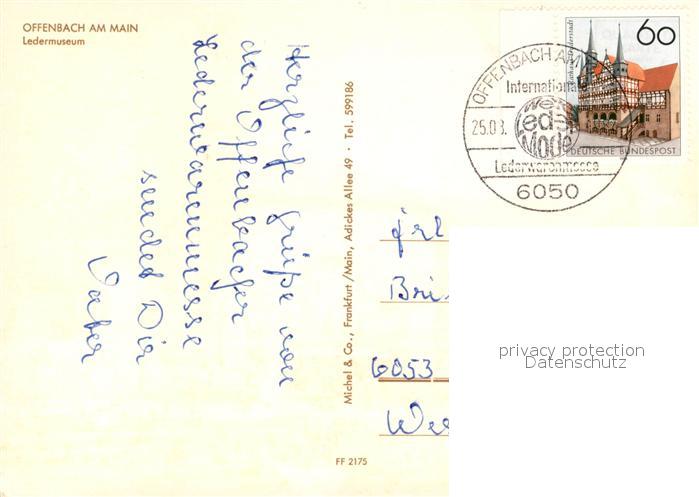 OFFENBACH AM MAIN
Ledermuseum
Herzliche Grüße von
der Offenbacher
Lederwarenmesse
sendet Dir
Vater
Michel & Co., Frankfurt/Main, Adickes Allee 49 · Tel. 599186
FF 2175
OFFENBACH AM
Internationale
25.08.
Mode
Lederwarenmesse
6050
60
DEUTSCHE BUNDESPOST
Frl
Bri
6053
privacy protection
Datenschutz